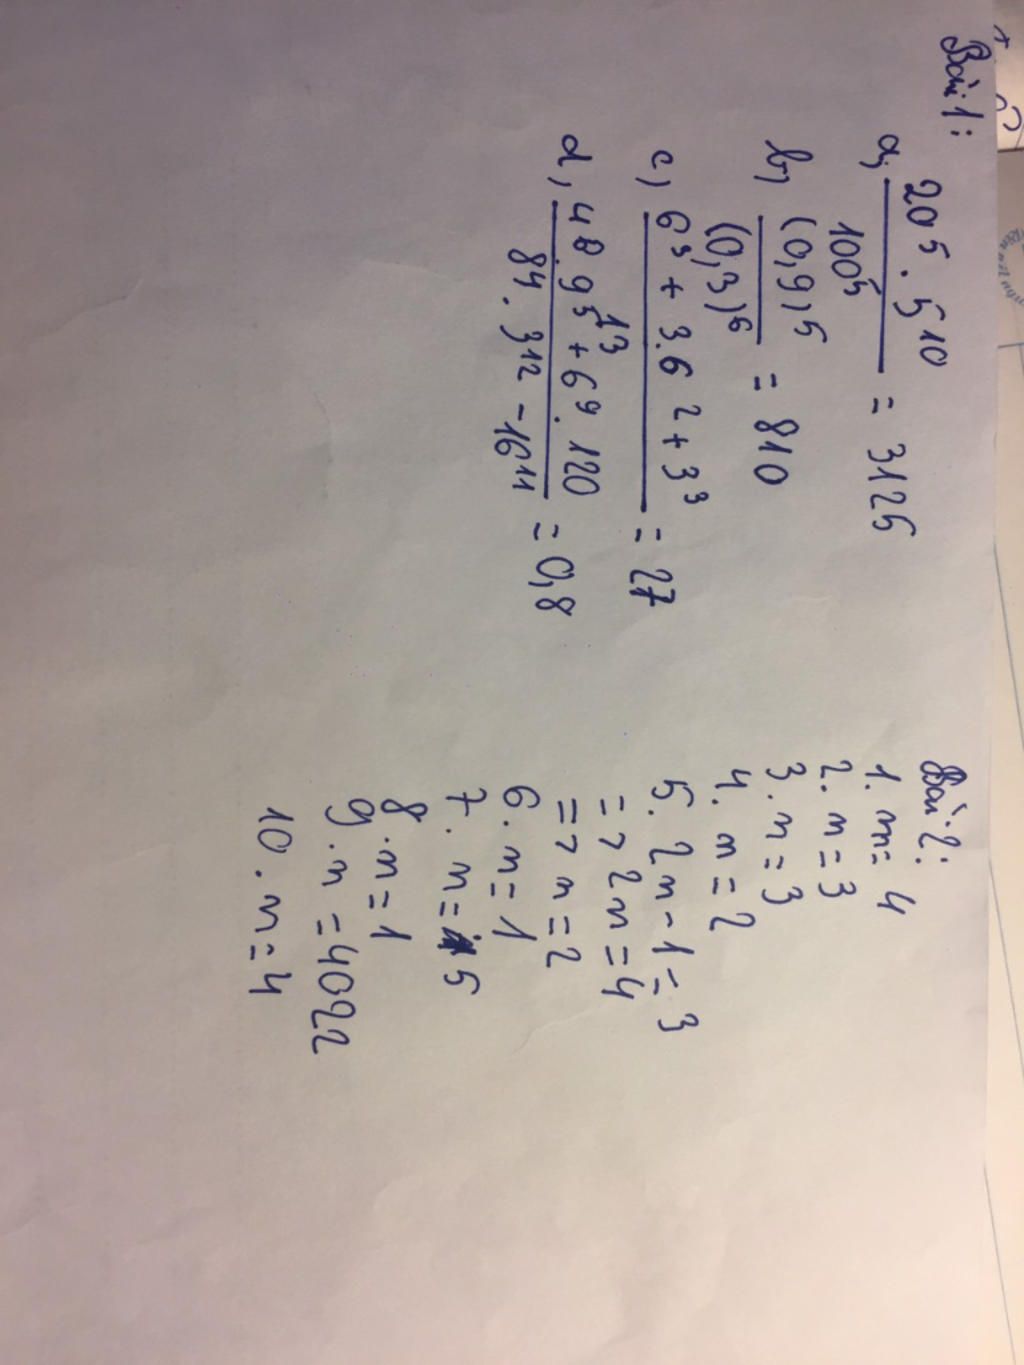 Bài 1:
a, 20⁵ . 5¹⁰ / 100⁵ = 3125
b, (0,9)⁵ / (0,3)⁶ = 810
c, 6³ + 3.6² + 3³ / 13 = 27
d, 4⁸ . 9⁵ + 6⁹ . 120 / 8⁴ . 3¹² - 16¹¹ = 0,8
Bài 2:
1. m = 4
2. n = 3
3. n = 3
4. n = 2
5. 2n - 1 = 3
=> 2n = 4
=> n = 2
6. n = 1
7. n = 5
8. n = 1
9. n = 4022
10. n = 4